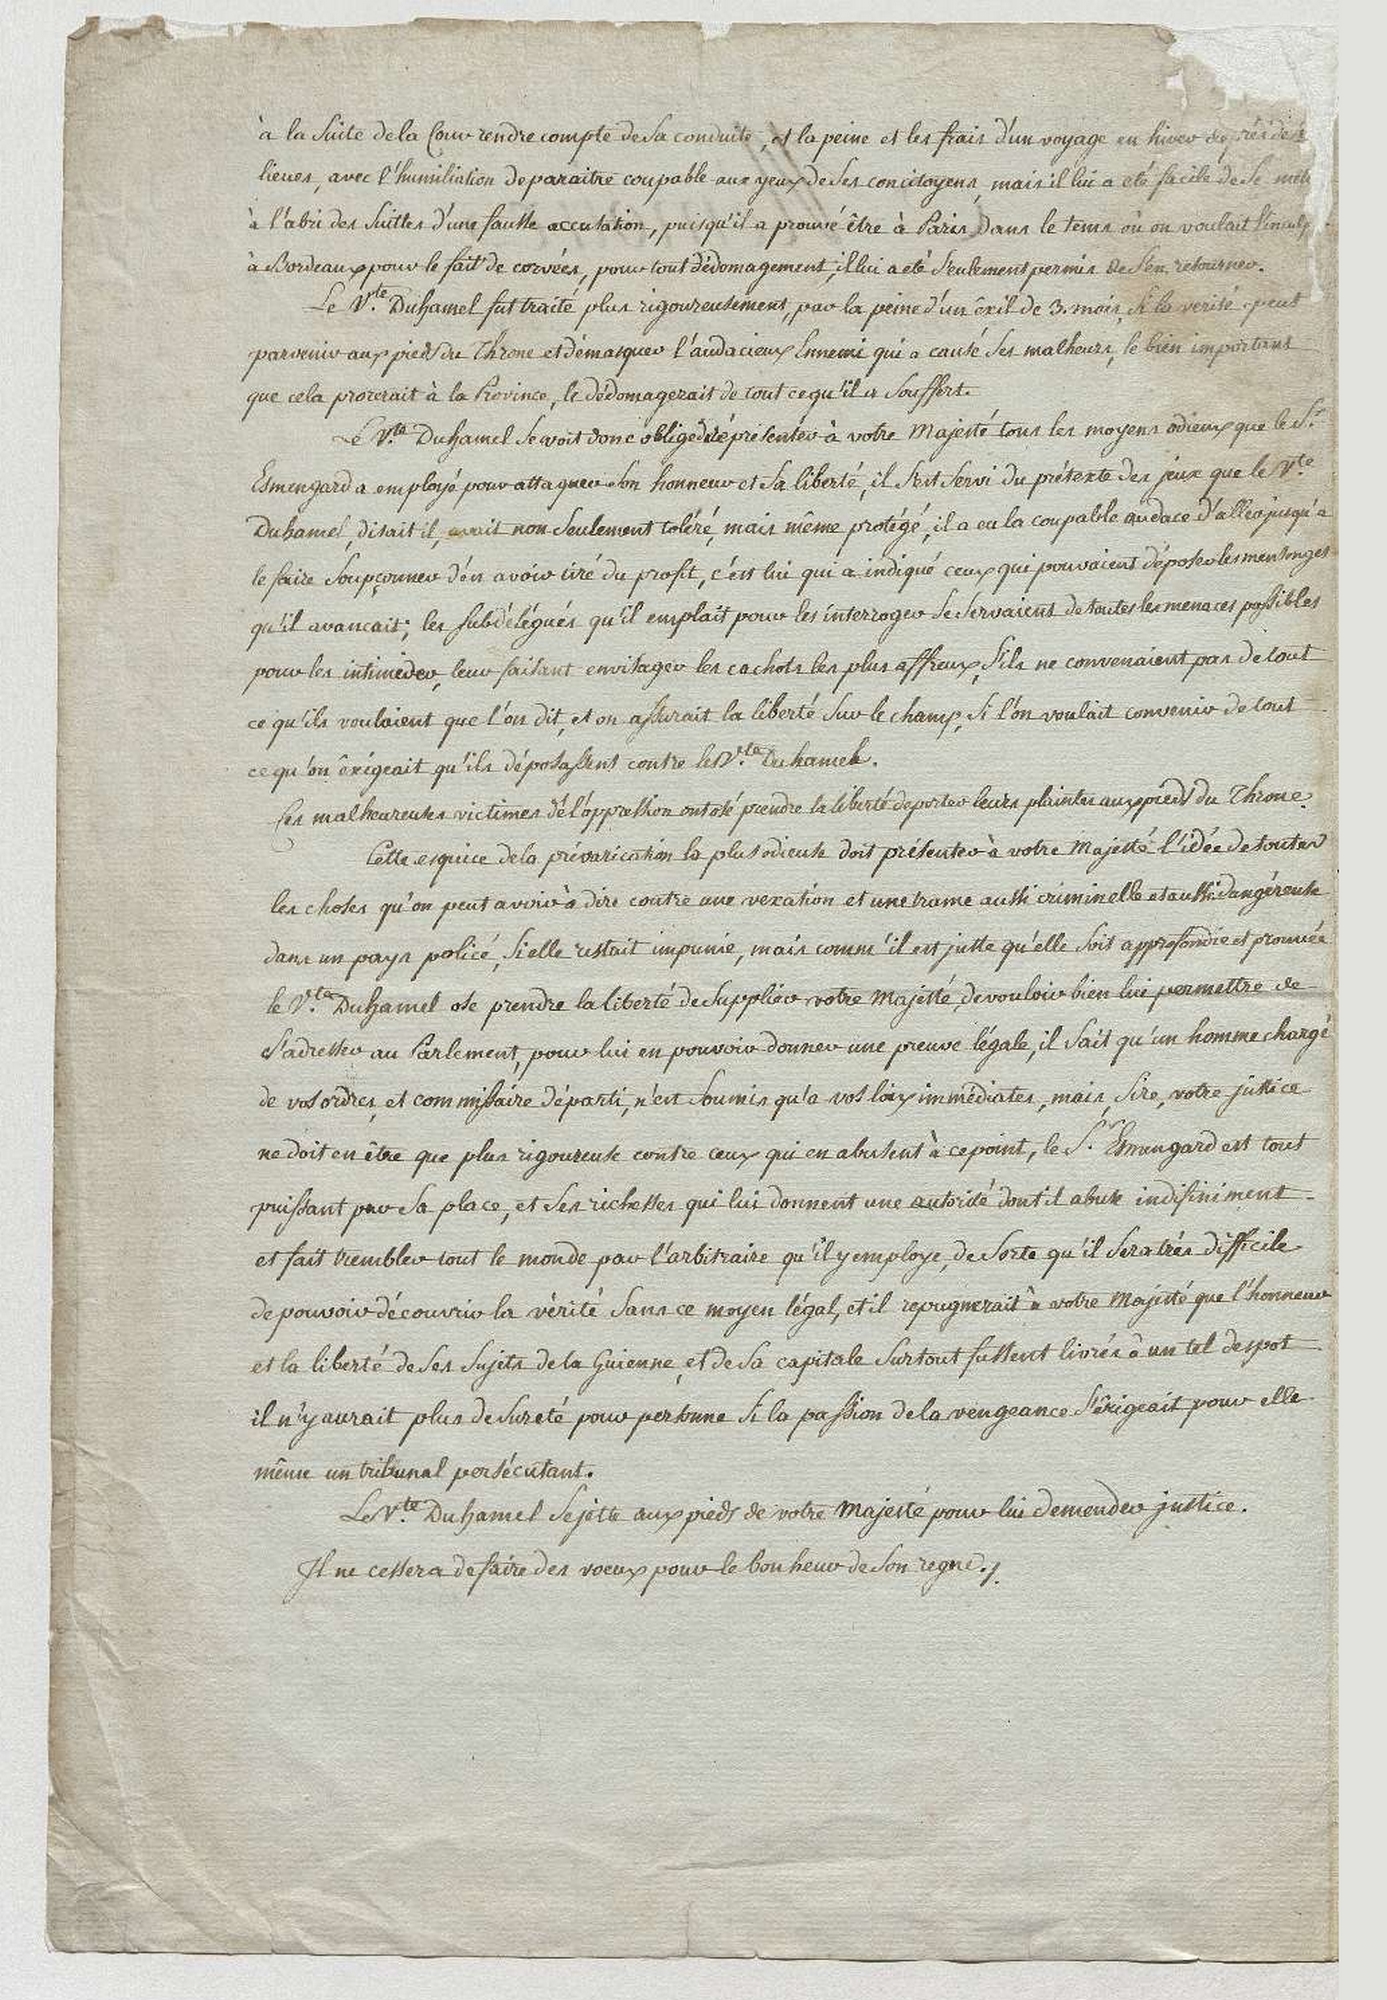 à la Suite de la Cour rendre compte de Sa conduite, et la peine et les frais d'un voyage en hiver de près de
lieues, avec l'humiliation de paraitre coupable aux yeux de Ses concitoyens, mais il lui a été facile de Se
à l'abri des Suittes d'une fausse accusation, puisqu'il a prouvé être à Paris dans le tems où on voulait l'inculp
à Bordeaux pour le fait de corvées, pour tout dédomagement, il lui a eté Seulement permis de S'en retourner.
Le V.te Duhamel fut traité plus rigoureusement, par la peine d'un êxil de 3. mois, Si la verité peut
parvenir aux pieds du Throne et démasquer l'audacieux Ennemi qui a causé Ses malheurs, le bien important
que cela procrerait à la Province, le dédomagerait de tout ce qu'il a Souffert.
Le V.te Duhamel Se voit donc obligé de réprésenter à votre Majesté tous les moyens odieux que le S.r
Esmengard a employé pour attaquer Son honneur et Sa liberté, il S'est Servi du prétexte des jeux que le V.te
Duhamel, disait il, avait non Seulement toléré, mais même protégé, il a eu la coupable audace d'aller jusqu'a
le faire Soupçonner d'en avoir tiré du profit, c'est lui qui a indiqué ceux qui pouvaient déposer les mensonges
qu'il avancait; les Subdélégués qu'il emplait pour les interroger Se Servaient de toutes les menaces possibles
pour les intimeder, leur faisant envisager les cachots les plus affreux, S'ils ne convenaient pas de tout
ce qu'ils voulaient que l'on dit, et on assurait la liberté Sur le champ, Si l'on voulait convenir de tout
ce qu'on êxigeait qu'ils déposassent contre le V.te Duhamel.
Ces malheureuses victimes de l'oppression ont osé prendre la liberté de porter leurs plaintes aux pieds du Throne.
Cette esquice de la prévarication la plus odieuse doit présenter à votre Majesté l'idée de toutes
les choses qu'on peut avvoir à dire contre une vexation et une trame aussi criminelle et aussi dangéreuse
dans un pays policé, Si elle restait impunie, mais comm'il est juste qu'elle Soit approfondie et prouvée
le V.te Duhamel ose prendre la liberté de Supplier votre Majesté, de vouloir bien lui permettre de
S'adresser au Parlement, pour lui en pouvoir donner une preuve légale, il Sait qu'un homme chargé
de vos ordres, et commissaire départi, n'est Soumis qu'a vos loix immédiates, mais, Sire, votre justice
ne doit en être que plus rigoureuse contre ceux qui en abusent à ce point, le S.r Esmengard est tout
puissant par Sa place, et Ses richesses qui lui donnent une autorité dont il abuse indifiniment
et fait trembler tout le monde par l'arbitraire qu'il y employe, de Sorte qu'il Sera trés difficile
de pouvoir découvrir la vérité Sans ce moyen légal, et il repugnerait à votre Majesté que l'honneur
et la liberté de Ses Sujets de la Guienne, et de Sa capitale Surtout fussent livrés à un tel despot
il n'y aurait plus de Sureté pour personne Si la passion de la vengeance S'érigeait pour elle
même un tribunal persécutant.
Le V.te Duhamel Se jette aux pieds de votre Majesté pour lui demender justice.
Il ne cessera de faire des voeux pour le bonheur de Son regne./.